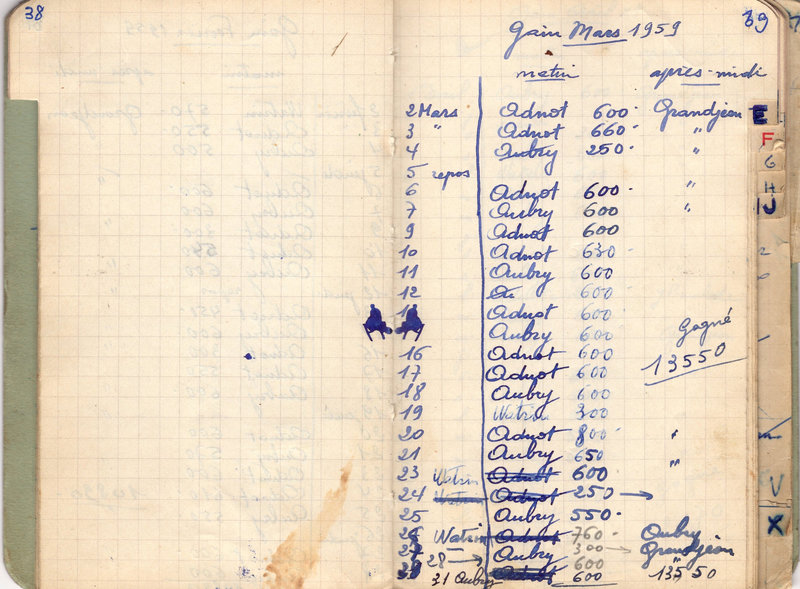 38
39
Gain Mars 1959
matin après-midi
2 Mars Adnot 600 Grandjean
3 " Adnot 660 "
4 Aubry 250 "
5 repos
6 Adnot 600 "
7 Aubry 600 "
9 Adnot 600
10 Adnot 630
11 Aubry 600
12 600
Adnot 600
Aubry 600 Gagné
16 Adnot 600 13550
17 Adnot 600
18 Aubry 600
19 Watrin 300
20 Adnot 800 "
21 Aubry 650 "
23 Watrin Adnot 600
24 Watrin Adnot 250 →
25 Aubry 550
26 Watrin Adnot 760 Aubry
27 Aubry 300 → Grandjean
28 → 600 "
31 Aubry Adnot 600 13550
E
F
G
H
IJ
V
X